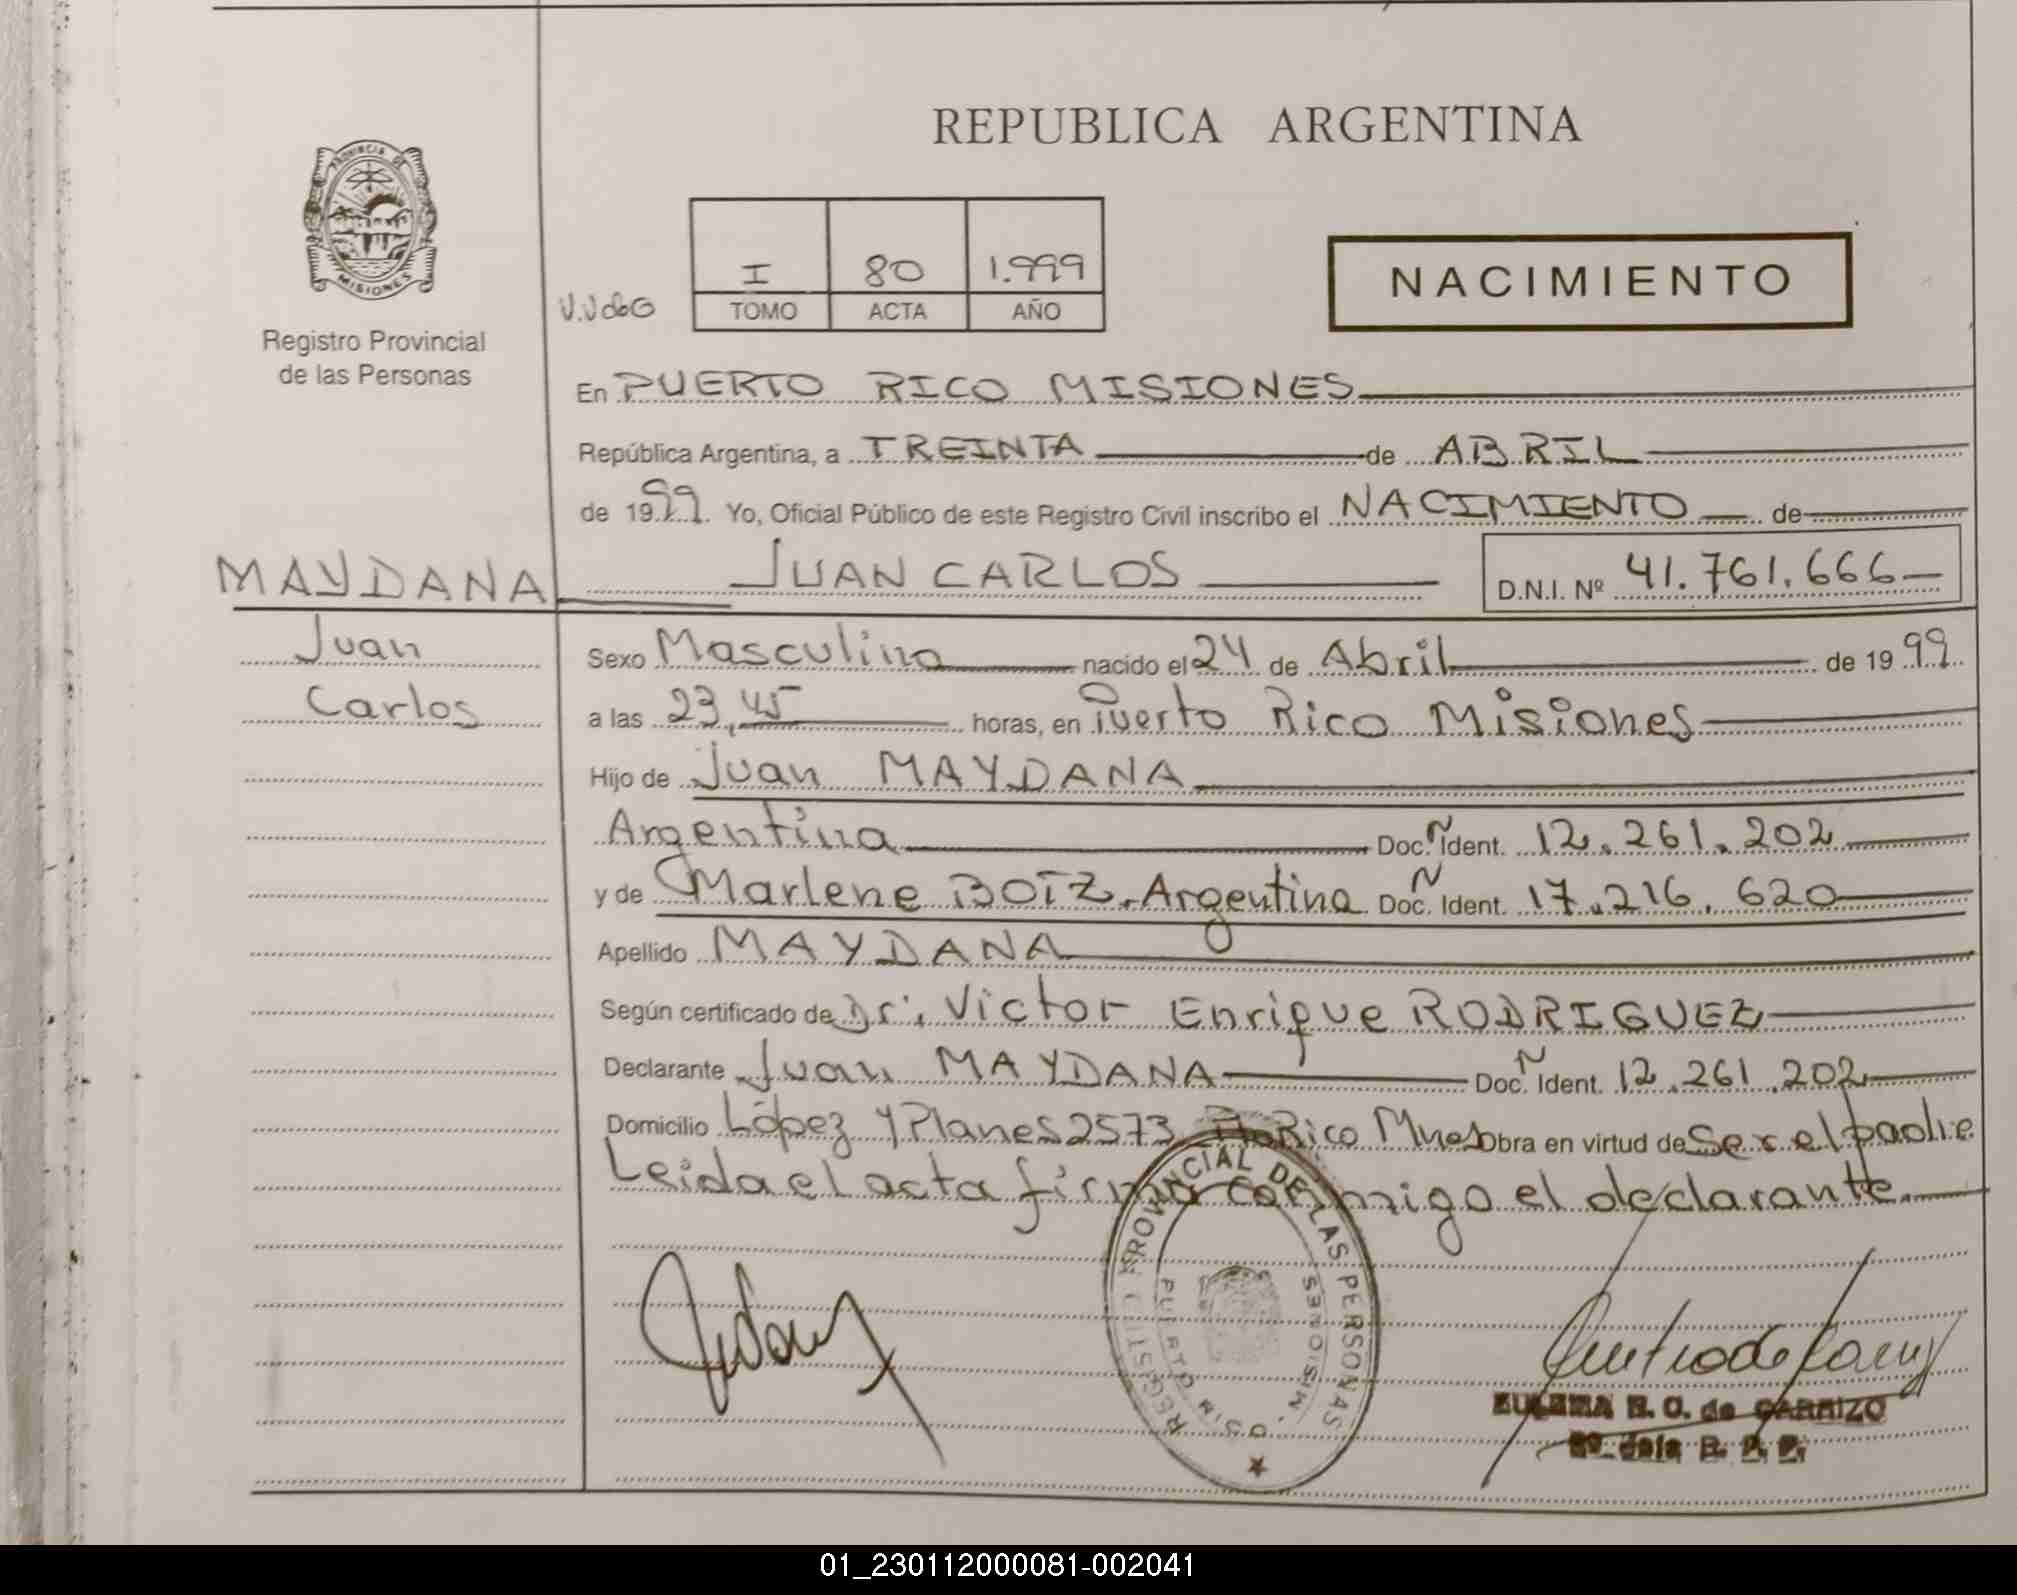 REPUBLICA ARGENTINA
PROVINCIA DE
MISIONES
Registro Provincial
de las Personas
I 80 1.999
TOMO ACTA AÑO
NACIMIENTO
En PUERTO RICO MISIONES
República Argentina, a TREINTA de ABRIL
de 1999. Yo, Oficial Público de este Registro Civil inscribo el NACIMIENTO de
MAYDANA JUAN CARLOS D.N.I. Nº 41.761.666
Juan
Carlos
Sexo Masculino nacido el 24 de Abril de 1999
a las 23,45 horas, en Puerto Rico Misiones
Hijo de Juan MAYDANA
Argentina Doc. Ident. 12.261.202
y de Marlene BOTZ. Argentina Doc. Ident. 17.216.620
Apellido MAYDANA
Según certificado de Dr. Victor Enrique RODRIGUEZ
Declarante Juan MAYDANA Doc. Ident. 12.261.202
Domicilio López y Planes 2573 Pto Rico Mnes Obra en virtud de Ser el padre
Leida el acta firma conmigo el declarante.
REGISTRO PROVINCIAL DE LAS PERSONAS
PUERTO RICO - MISIONES
de CARRIZO
01_230112000081-002041